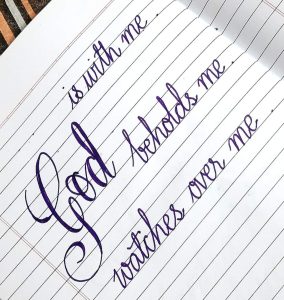 is with me.
God beholds me.
watches over me